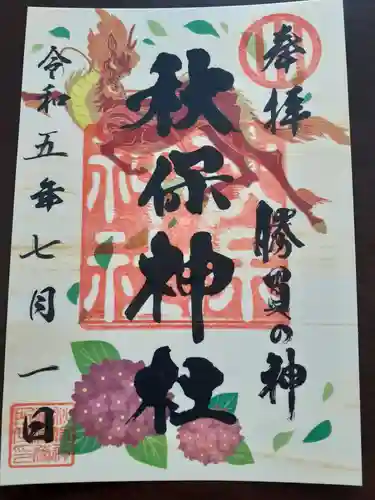 奉拝
勝負の神
秋保神社
令和五年七月一日